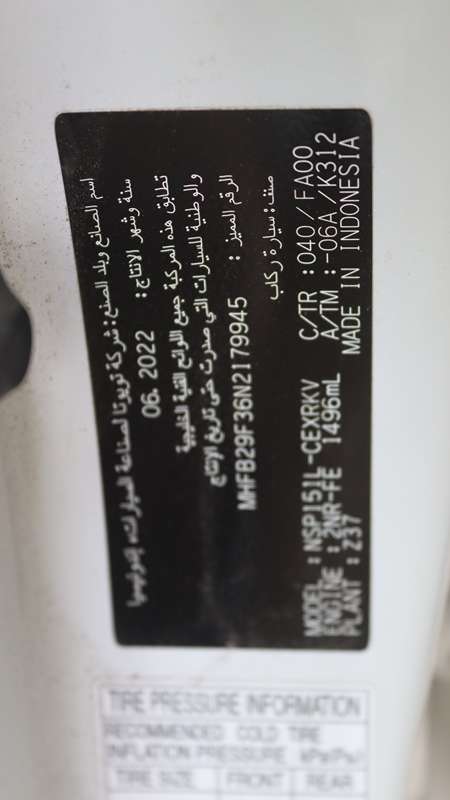 اسم الصانع وبلد الصنع: شركة تويوتا لصناعة السيارات، إندونيسيا
سنة وشهر الانتاج: 06. 2022
تطابق هذه المركبة جميع اللوائح الفنية الخليجية
والوطنية للسيارات التي صدرت حتى تاريخ الإنتاج
الرقم المميز: MHFB29F36N2179945
صنف: سيارة ركاب
MODEL : NSP151L-CEXRKV C/TR : 040/FA00
ENGINE : 2NR-FE 1496mL A/TM : -06A/K312
PLANT : Z37 MADE IN INDONESIA
TIRE PRESSURE INFORMATION
RECOMMENDED COLD TIRE
INFLATION PRESSURE kPa(Psi)
TIRE SIZE FRONT REAR